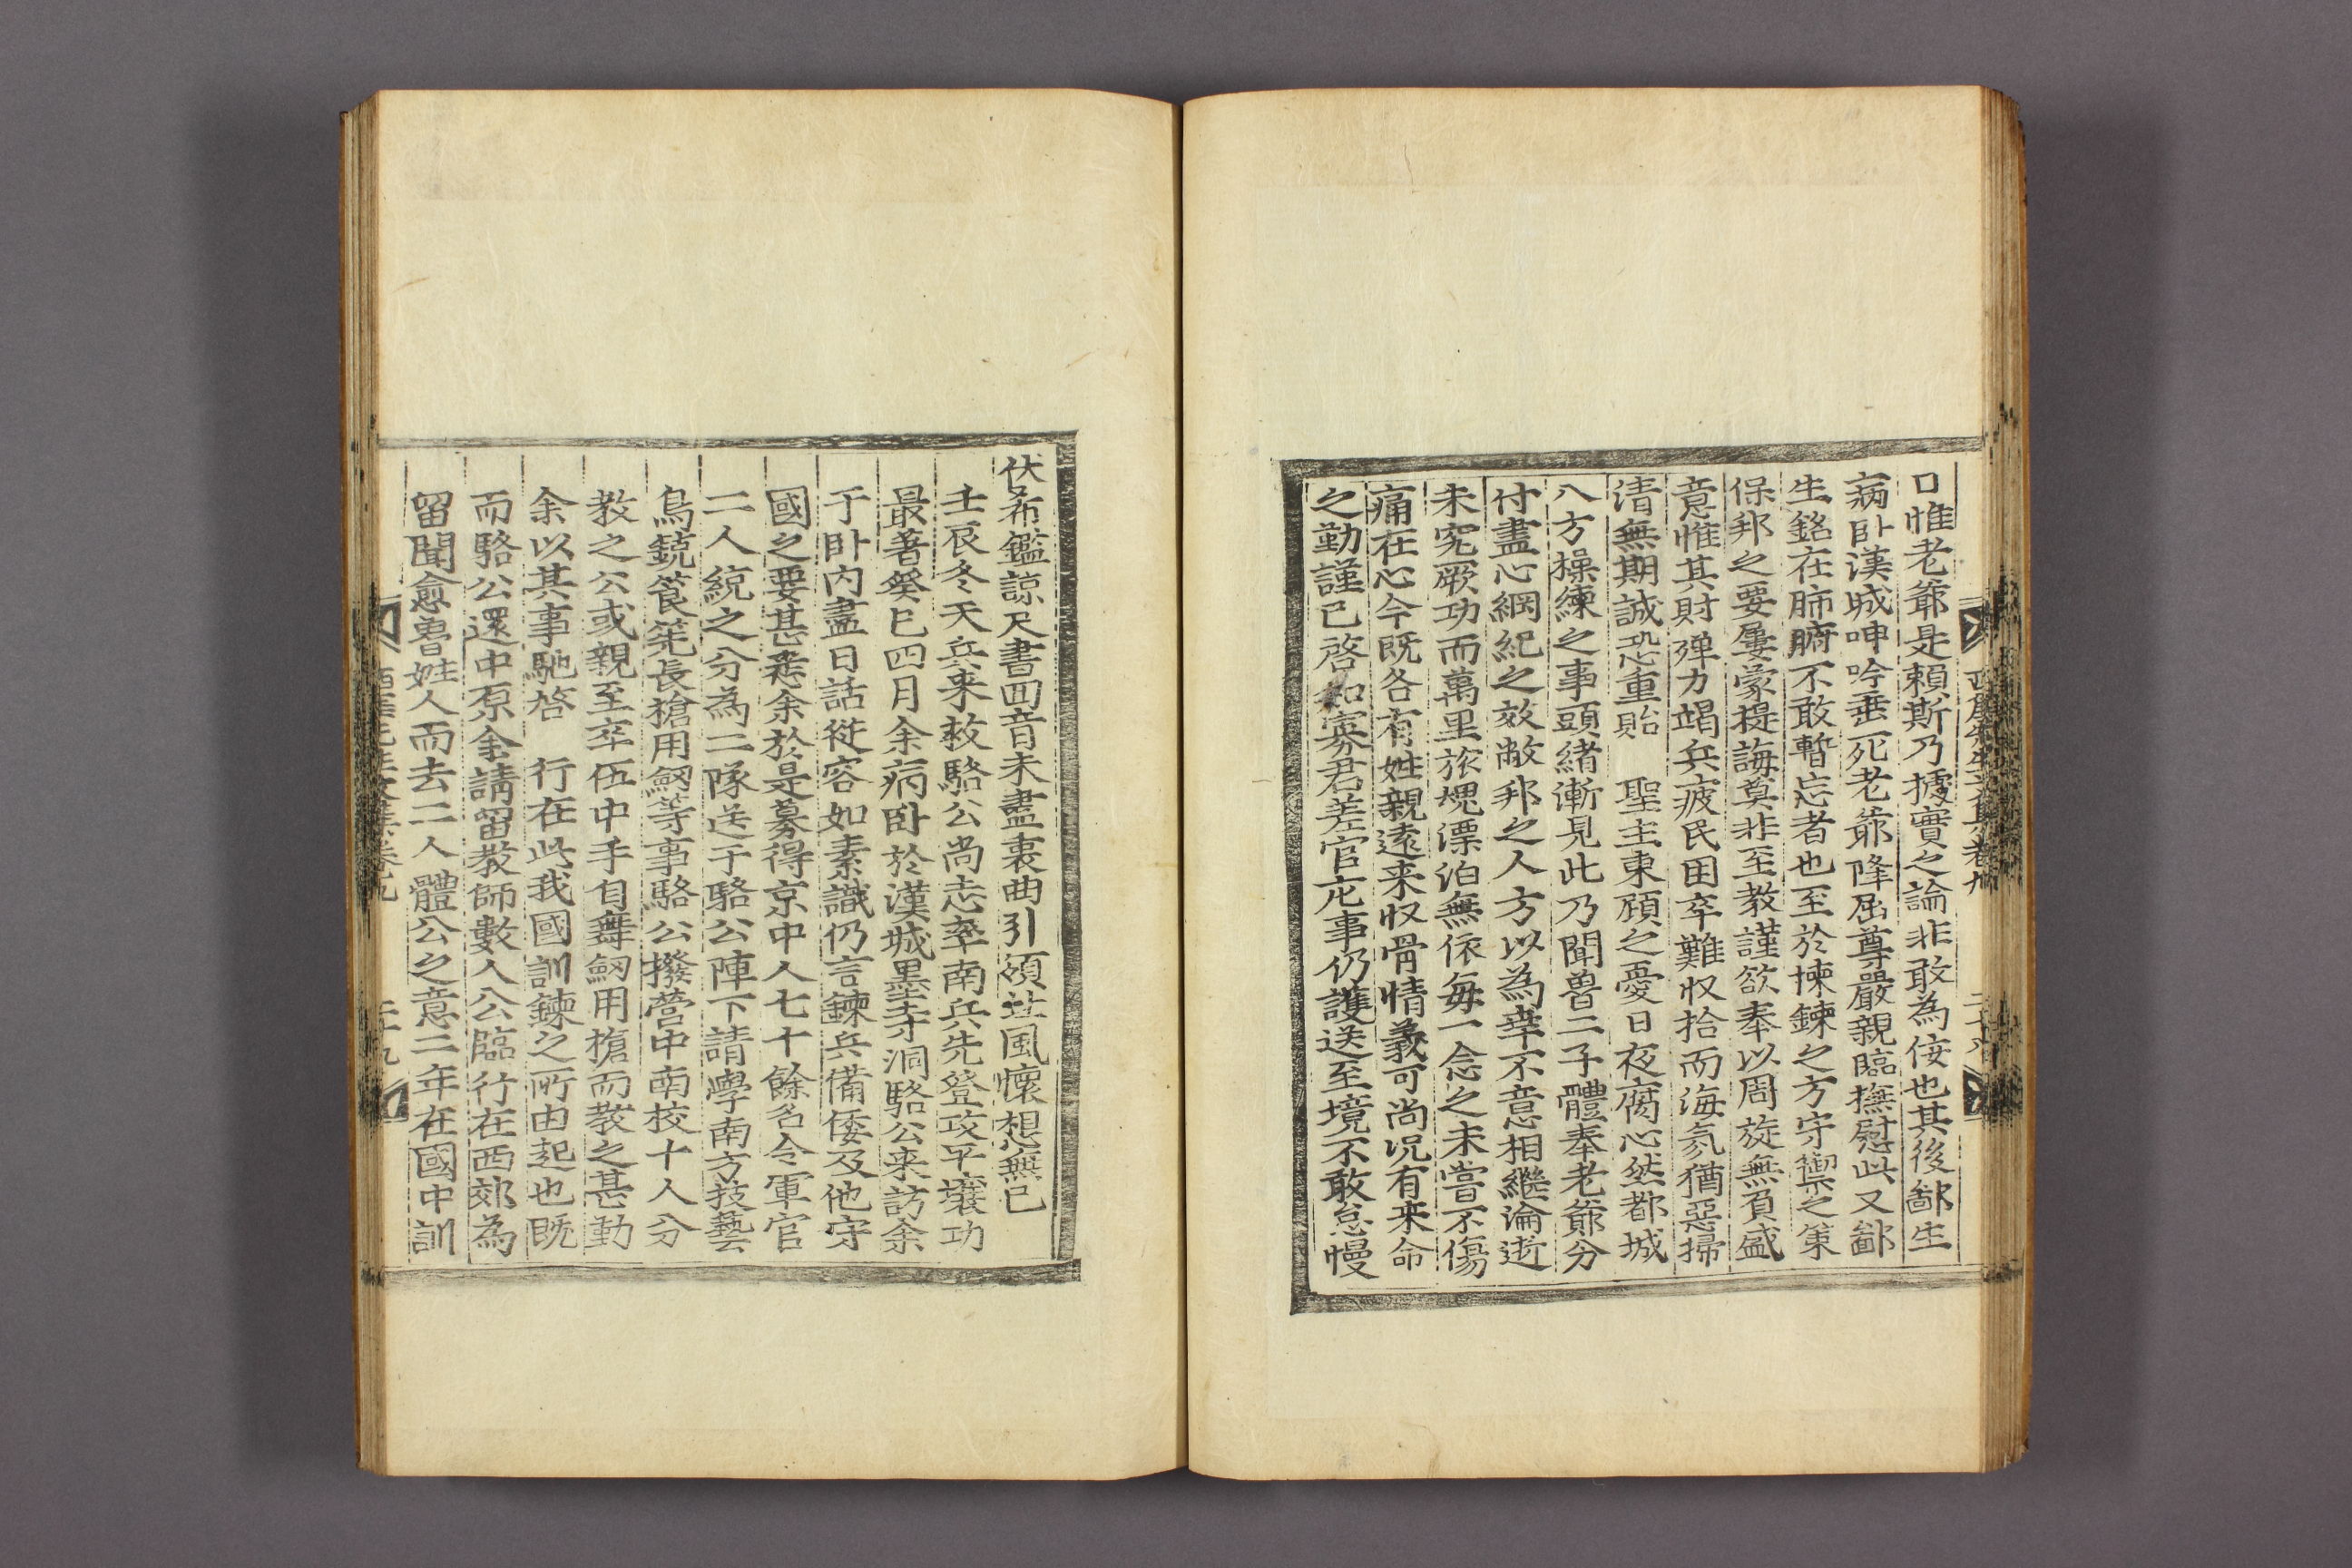 口惟老爺是賴斯乃攄實之論非敢為佞也其後鄙生
病卧漢城呻吟垂死老爺降屈尊嚴親臨撫慰此又鄙
生銘在肺腑不敢暫忘者也至於揀鍊之方守禦之策
保邦之要屢蒙提誨莫非至教謹欲奉以周旋無負盛
意惟其財殫力竭兵疲民困卒難収拾而海氛猶惡掃
清無期誠恐重貽 聖主東顧之憂日夜腐心然都城
八方操練之事頭緒漸見此乃聞魯二子體奉老爺分
付盡心綱紀之效敝邦之人方以為幸不意相繼淪逝
未究厥功而萬里旅櫬漂泊無依每一念之未嘗不傷
痛在心今既各有姓親遠来収骨情義可尚况有来命
之勤謹已啓知寡君差官庀事仍護送至境不敢怠慢
伏希鑑諒尺書囬音未盡裏曲引領趍風懷想無已
壬辰冬天兵来救駱公尚志率南兵先登攻平壤功
最著癸巳四月余病卧於漢城墨寺洞駱公来訪余
于卧内盡日話從容如素識仍言鍊兵備倭及他守
國之要甚悉余於是募得京中人七十餘名令軍官
二人統之分為二隊送于駱公陣下請學南方技藝
鳥銃筤筅長槍用劒等事駱公撥營中南校十人分
教之公或親至卒伍中手自舞劒用槍而教之甚勤
余以其事馳啓 行在此我國訓鍊之所由起也既
而駱公還中原余請留教師數人公臨行在西郊為
留聞愈魯姓人而去二人體公之意二年在國中訓